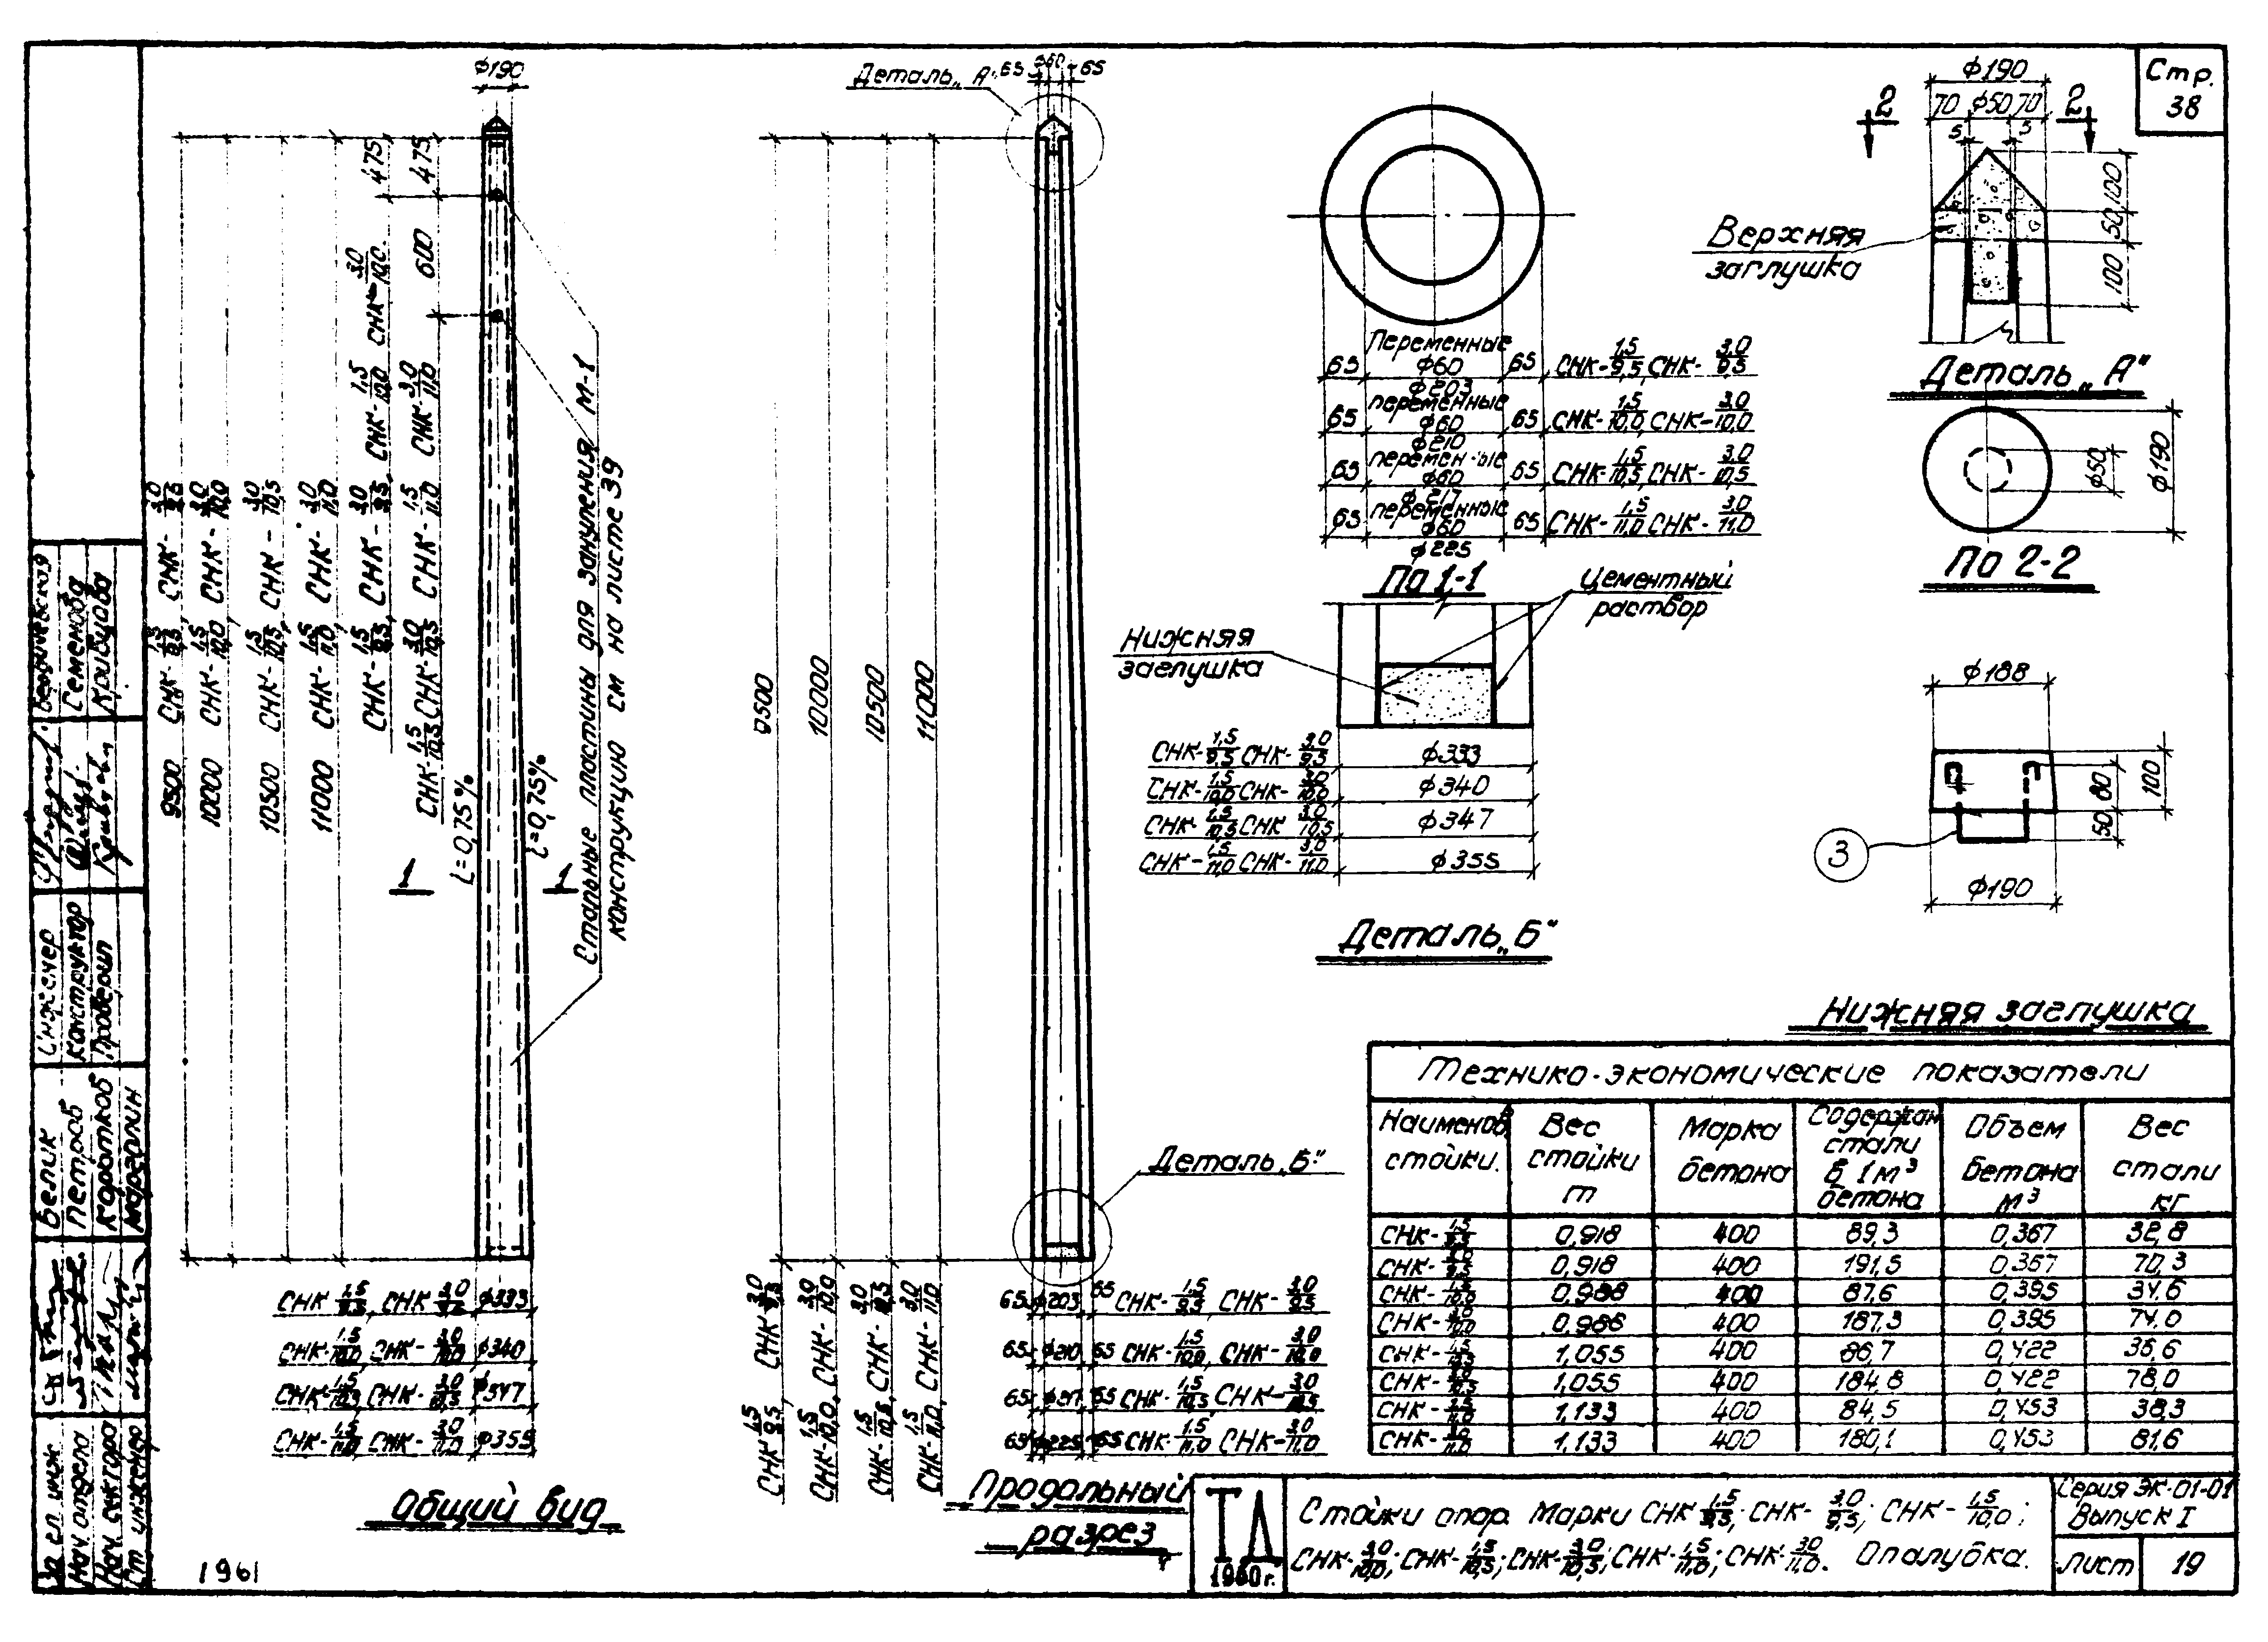 Стр.
38
ф190
475
475
600
СНК-1,5/9,5, СНК-3,0/9,5
9500
СНК-1,5/10,0, СНК-3,0/10,0
10000
СНК-1,5/10,5, СНК-3,0/10,5
10500
СНК-1,5/11,0, СНК-3,0/11,0
11000
СНК-1,5/9,5, СНК-3,0/9,5, СНК-1,5/10,0 СНК-3,0/10,0
СНК-1,5/10,5 СНК-3,0/10,5 СНК-1,5/11,0 СНК-3,0/11,0
i=0,75%
i=0,75%
1 1
Стальные пластины для зануления М-1
конструкцию см на листе 39
СНК-1,5/9,5, СНК-3,0/9,5 ф333
СНК-1,5/10,0, СНК-3,0/10,0 ф340
СНК-1,5/10,5, СНК-3,0/10,5 ф347
СНК-1,5/11,0, СНК-3,0/11,0 ф355
Общий вид
1961
Деталь „А"
65 ф60 65
9500
10000
10500
11000
Деталь „Б"
СНК-1,5/9,5, СНК-3,0/9,5
СНК-1,5/10,0, СНК-3,0/10,0
СНК-1,5/10,5, СНК-3,0/10,5
СНК-1,5/11,0, СНК-3,0/11,0
65 ф203 65 СНК-1,5/9,5, СНК-3,0/9,5
65 ф210 65 СНК-1,5/10,0, СНК-3,0/10,0
65 ф217 65 СНК-1,5/10,5 СНК-3,0/10,5
65 ф225 65 СНК-1,5/11,0 СНК-3,0/11,0
Продольный
разрез
Переменные
65 ф60 65 СНК-1,5/9,5, СНК-3,0/9,5
ф203
переменные
65 ф60 65 СНК-1,5/10,0, СНК-3,0/10,0
ф210
переменные
65 ф60 65 СНК-1,5/10,5, СНК-3,0/10,5
ф217
переменные
65 ф60 65 СНК-1,5/11,0 СНК-3,0/11,0
ф225
По 1-1
Цементный
раствор
Нижняя
заглушка
СНК-1,5/9,5 СНК-3,0/9,5 ф333
СНК-1,5/10,0 СНК-3,0/10,0 ф340
СНК-1,5/10,5 СНК-3,0/10,5 ф347
СНК-1,5/11,0 СНК-3,0/11,0 ф355
Деталь „Б"
ф190
2 70 ф50 70 2
5 5
100
50
100
Верхняя
заглушка
Деталь „А"
ф50
ф190
По 2-2
ф188
80
50
100
3
ф190
Нижняя заглушка
Технико-экономические показатели
Наименов. стойки. Вес стойки т Марка бетона Содержан. стали в 1м³ бетона Объем бетона м³ Вес стали кг
СНК-1,5/9,5 0,918 400 89,3 0,367 32,8
СНК-3,0/9,5 0,918 400 191,5 0,367 70,3
СНК-1,5/10,0 0,988 400 87,6 0,395 34,6
СНК-3,0/10,0 0,988 400 187,3 0,395 74,0
СНК-1,5/10,5 1,055 400 86,7 0,422 36,6
СНК-3,0/10,5 1,055 400 184,8 0,422 78,0
СНК-1,5/11,0 1,133 400 84,5 0,453 38,3
СНК-3,0/11,0 1,133 400 180,1 0,453 81,6
ТД
1960г.
Стойки опор. Марки СНК-1,5/9,5; СНК-3,0/9,5; СНК-1,5/10,0;
СНК-3,0/10,0; СНК-1,5/10,5; СНК-3,0/10,5; СНК-1,5/11,0; СНК-3,0/11,0. Опалубка.
Серия ЭК-01-01
Выпуск I
Лист 19
Инженер
Конструктор Семенова
Проверил Кривцова
Белик
Нач отдела Петров
Нач. сектора Коротков
Ст инженер Марголин